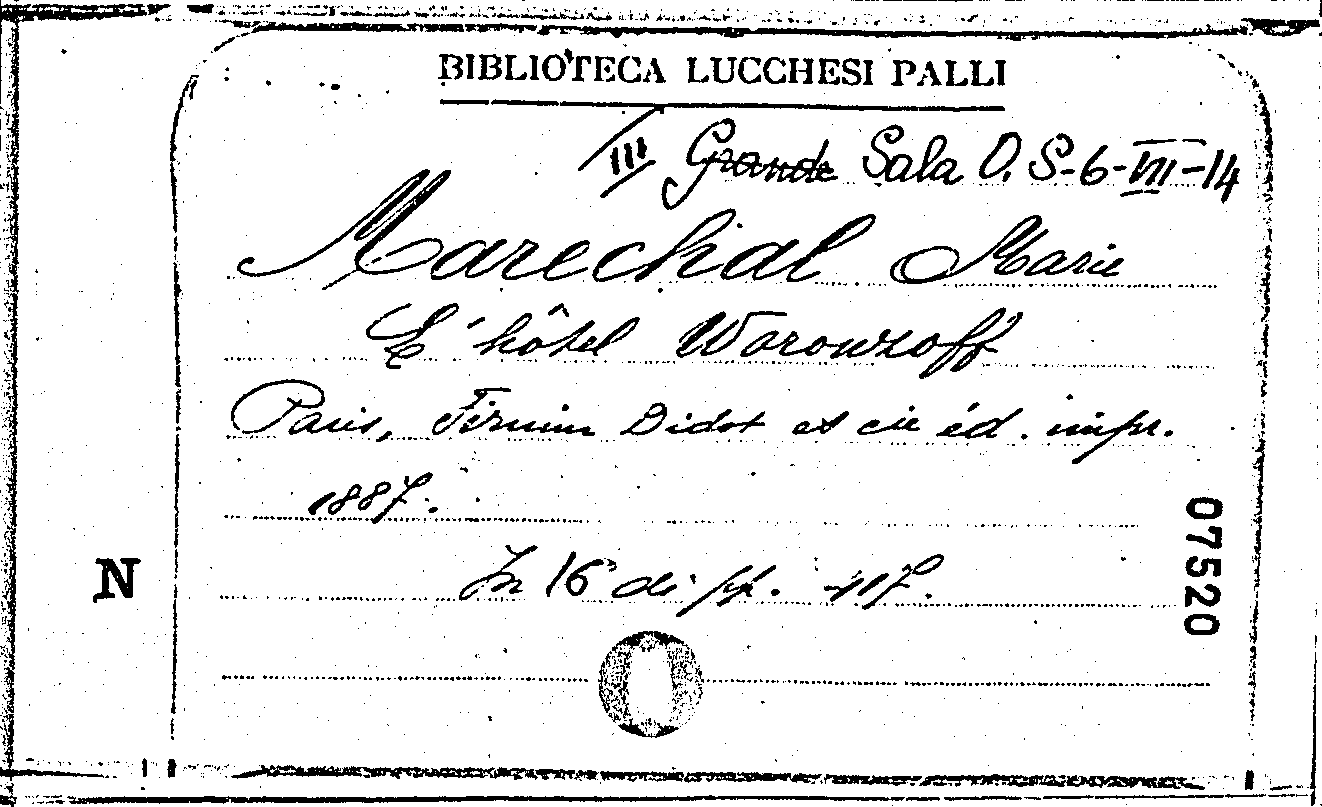 BIBLIOTECA LUCCHESI PALLI
III Grande Sala O. S-6-VIII-14
Marechal Marie
L'hôtel Woronzoff
Paris, Firmin Didot et cie éd. impr.
1887.
In 16° di pp. 417.
N
07520